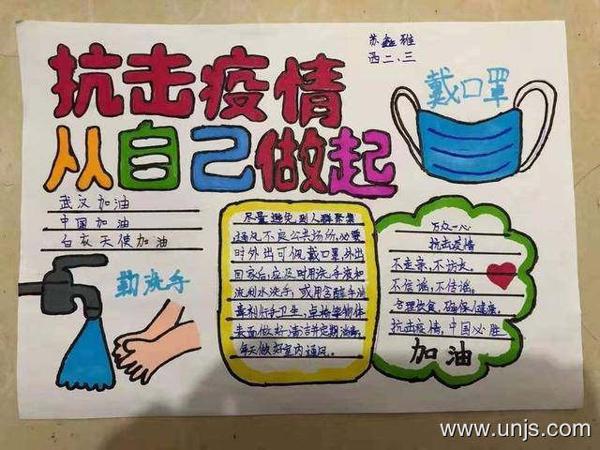 苏鑫雅
西二、三
抗击疫情
从自己做起
戴口罩
武汉加油
中国加油
白衣天使加油
勤洗手
尽量避免到人群聚集
通风不良公共场份,必要
时外出可佩戴口罩外出
回家后,应及时用洗手液和
流利水洗手,或用含醇手消
毒利行手卫生,桌椅等物体
表面做好清洁并定期消毒,
每天做好室内通风。
万众一心
抗击疫情
不走亲,不访友。
不信谣,不传谣。
合理饮食,确保健康。
抗击疫情,中国必胜
加油
www.unjs.com